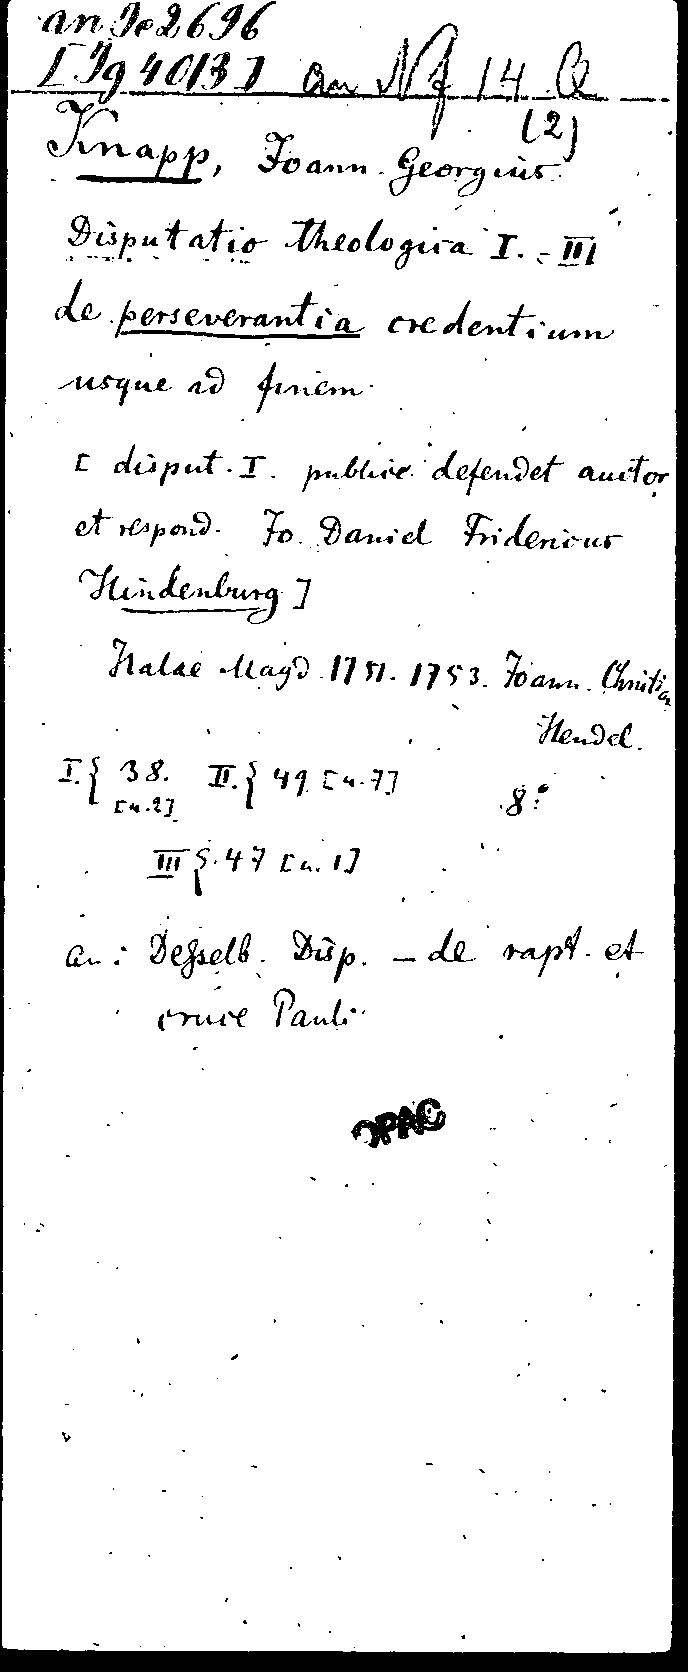 an Je 2696
[Ig 4013] an Nf 14 Q
(2)
Knapp, Joann. Georgius.
Disputatio theologica I. - III
de perseverantia credentium
usque ad finem.
[disput. I. publice defendet auctor
et respond. Jo. Daniel Fridericus
Hindenburg]
Halae Magd. 1751. 1753. Joann. Christian
Hendel.
I.{ 38. II.{ 49 [u. 7] 8°
[u. 2]
III{. 47 [u. 1]
an: Desselb. Disp. - de rapt. et
cruce Pauli.
OPAC